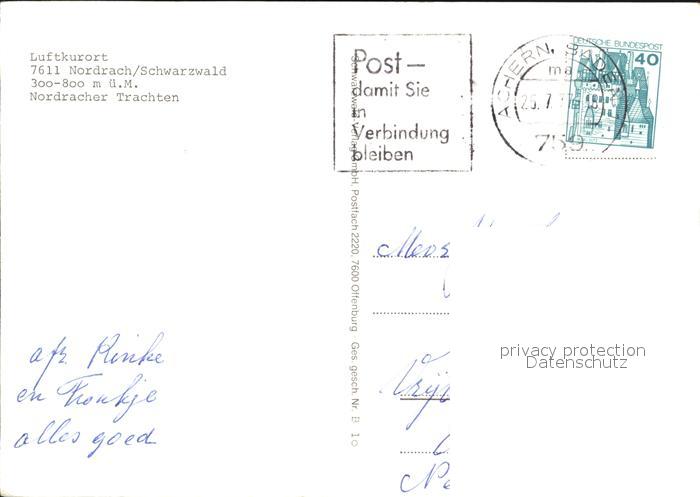 Luftkurort
7611 Nordrach/Schwarzwald
3oo-8oo m ü.M.
Nordracher Trachten
Post—
damit Sie
in
Verbindung
bleiben
ACHERN, BADEN
ma
25. 7. 7
759
DEUTSCHE BUNDESPOST
40
Schwarzwald Verlag GmbH, Postfach 2220, 7600 Offenburg Ges. gesch. Nr. B 10
afz. Rinke
en Froukje
alles goed
privacy protection
Datenschutz